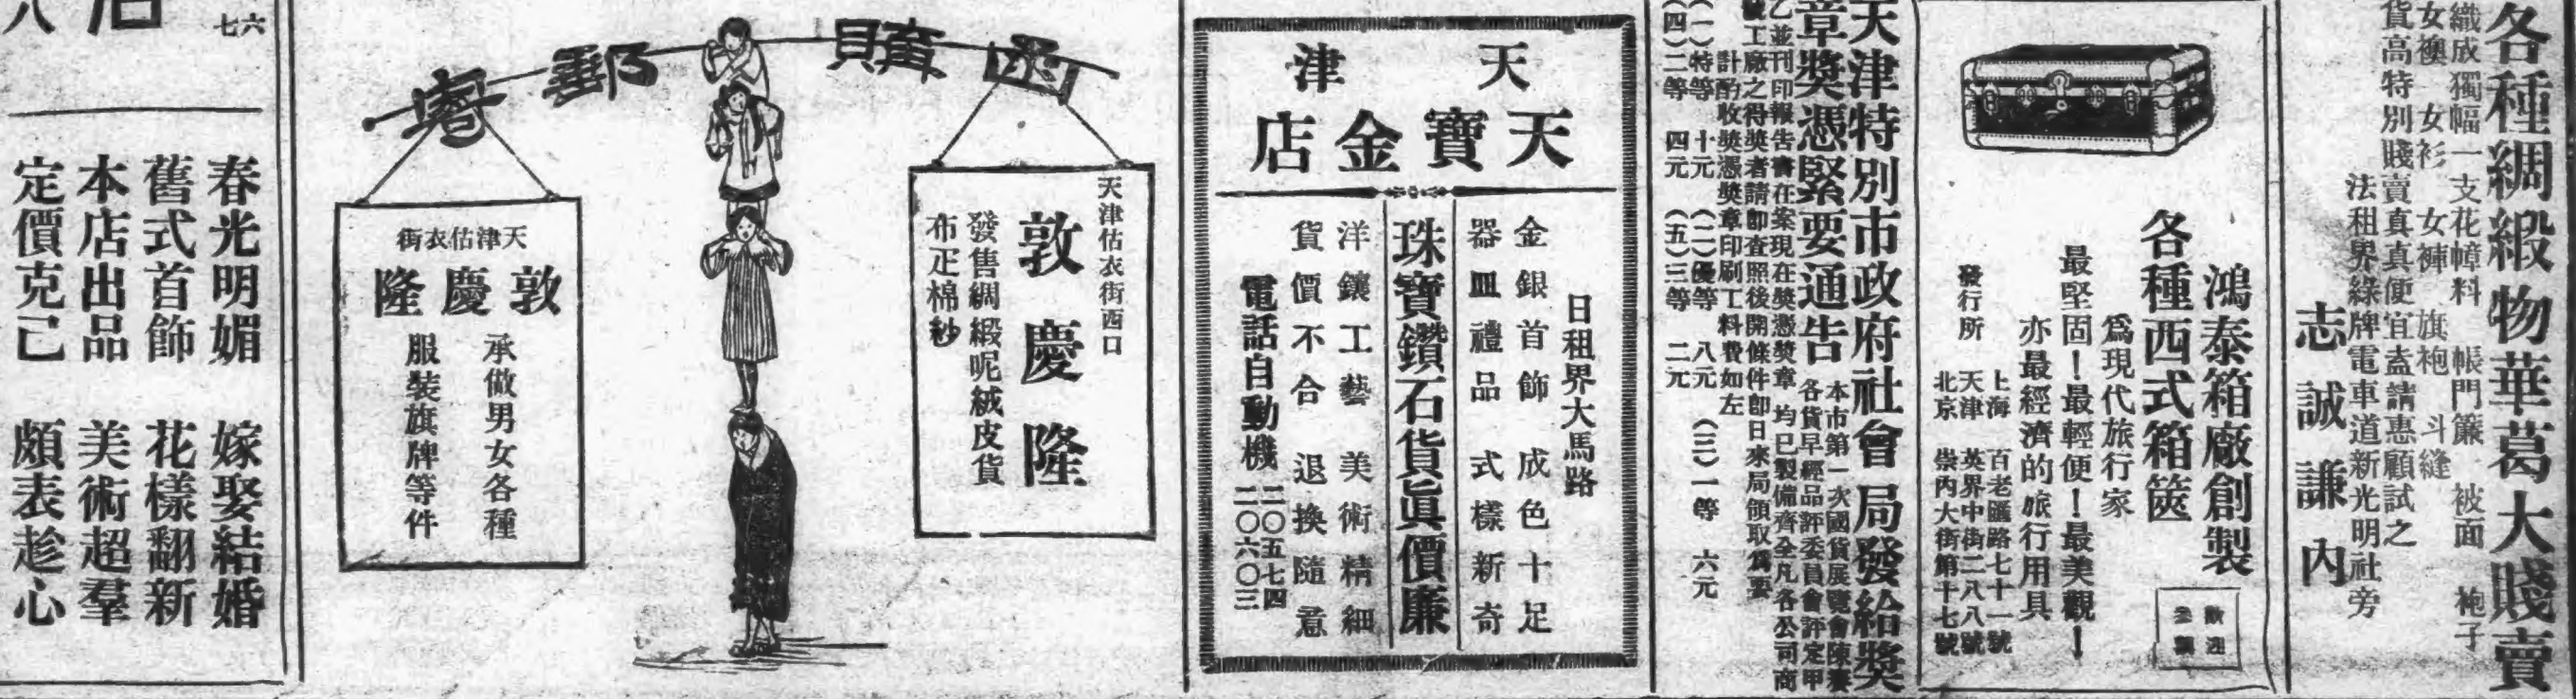 各種綢緞物華葛大賤賣
織成獨幅一支花幛料 帳門簾 被面 袍子
女襖 女衫 女褲 旗袍 斗縫
貨高特別賤賣真真便宜盍請惠顧試之
法租界綠牌電車道新光明社旁
志誠謙內
鴻泰箱廠創製
各種西式箱篋
爲現代旅行家
最堅固！最輕便！最美觀！
亦最經濟的旅行用具
發行所
上海 百老匯路七十一號
天津 英界中街二八八號
北京 崇內大街第十七號
天津特別市政府社會局發給獎
章獎憑緊要通告
本市第一次國貨展覽會陳賽
各貨早經品評委員會評定甲
乙並刊印報告書在案現在獎憑獎章均已製備齊全凡各公司商
號工廠之得獎者請即查照後開條件即日來局領取爲要
計酌收獎憑獎章印刷工料費如左
(一)特等 十元 (二)優等 八元 (三)一等 六元
(四)二等 四元 (五)三等 二元
天津
天寶金店
日租界大馬路
金銀首飾 成色十足
器皿禮品 式樣新奇
珠寶鑽石貨真價廉
洋鑲工藝 美術精細
貨價不合 退換隨意
電話自動機 二〇五七四 二〇六〇三
函購郵寄
天津估衣街西口
敦慶隆
發售綢緞呢絨皮貨
布疋棉紗
天津估衣街
敦慶隆
承做男女各種
服裝旗牌等件
六
七
春光明媚 嫁娶結婚
舊式首飾 花樣翻新
本店出品 美術超羣
定價克己 頗表趁心